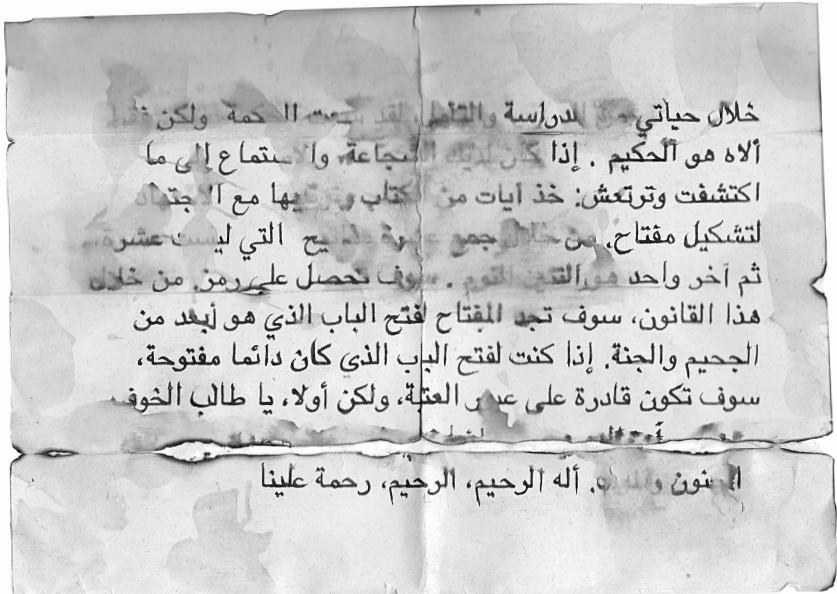 خلال حياتي من الدراسة والتأمل، لقد سعت الحكمة ولكن فقط
ألاه هو الحكيم . إذا كان لديك الشجاعة، والاستماع إلى ما
اكتشفت وترتعش: خذ آيات من الكتاب وترقيها مع الاجتهاد
لتشكيل مفتاح. من خلال جمع عشرة مفاتيح التي ليست عشرة،
ثم آخر واحد هو . سوف تحصل على رمز. من خلال
هذا القانون، سوف تجد المفتاح لفتح الباب الذي هو أبعد من
الجحيم والجنة. إذا كنت لفتح الباب الذي كان دائما مفتوحة،
سوف تكون قادرة على عبور العتبة، ولكن أولا، يا طالب الخوف
الجنون . أله الرحيم، الرحيم، رحمة علينا